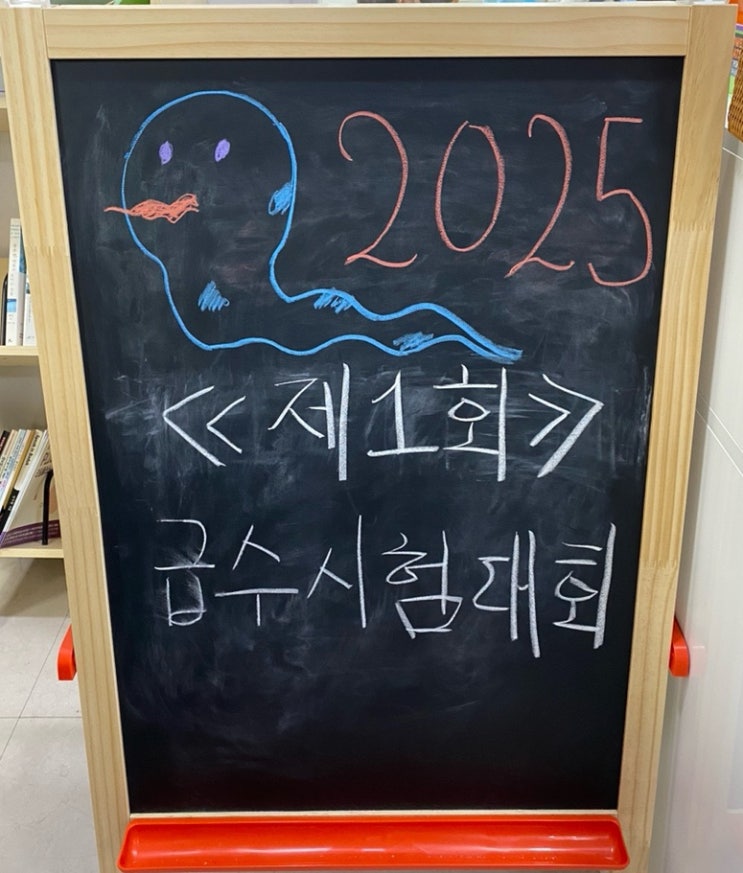 2025
<<제1회>
급수시험대회